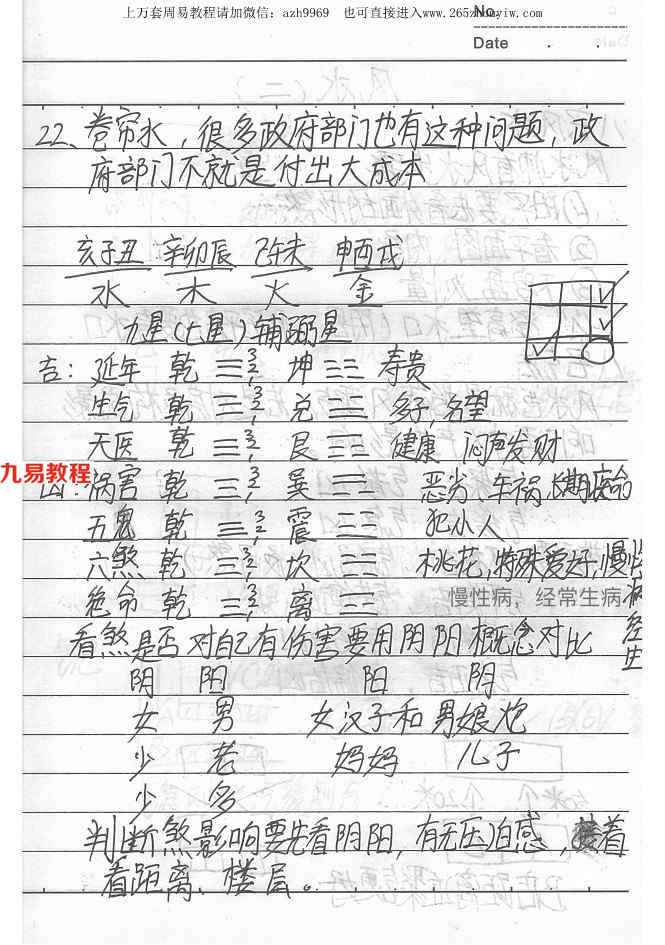 上万套周易教程请加微信：azh9969 也可直接进入www.265zhouyiw.com
No.
Date . .
22、卷帘水，很多政府部门也有这种问题，政
府部门不就是付出大成本
亥子丑 辛卯辰 巳午未 申酉戌
水 木 火 金
九星（七星）辅弼星
吉：延年 乾 ☰ 3 2 1 坤 ☷ 寿贵
生气 乾 ☰ 3 2 1 兑 ☱ 多子，名望
天医 乾 ☰ 3 2 1 艮 ☶ 健康 闷声发财
九易教程
凶：祸害 乾 ☰ 3 2 1 巽 ☴ 恶劣、车祸
五鬼 乾 ☰ 3 2 1 震 ☳ 犯小人
六煞 乾 ☰ 3 2 1 坎 ☵ 桃花，特殊爱好，慢性病经常生
绝命 乾 ☰ 3 2 1 离 ☲ 慢性病，经常生病
看煞是否对自己有伤害要用阴阳概念对比
阴 阳 阳 阴
女 男 女汉子和男娘炮
少 老 妈妈 儿子
少 多
判断煞影响要先看阴阳，有无压迫感，接着
看距离、楼层。